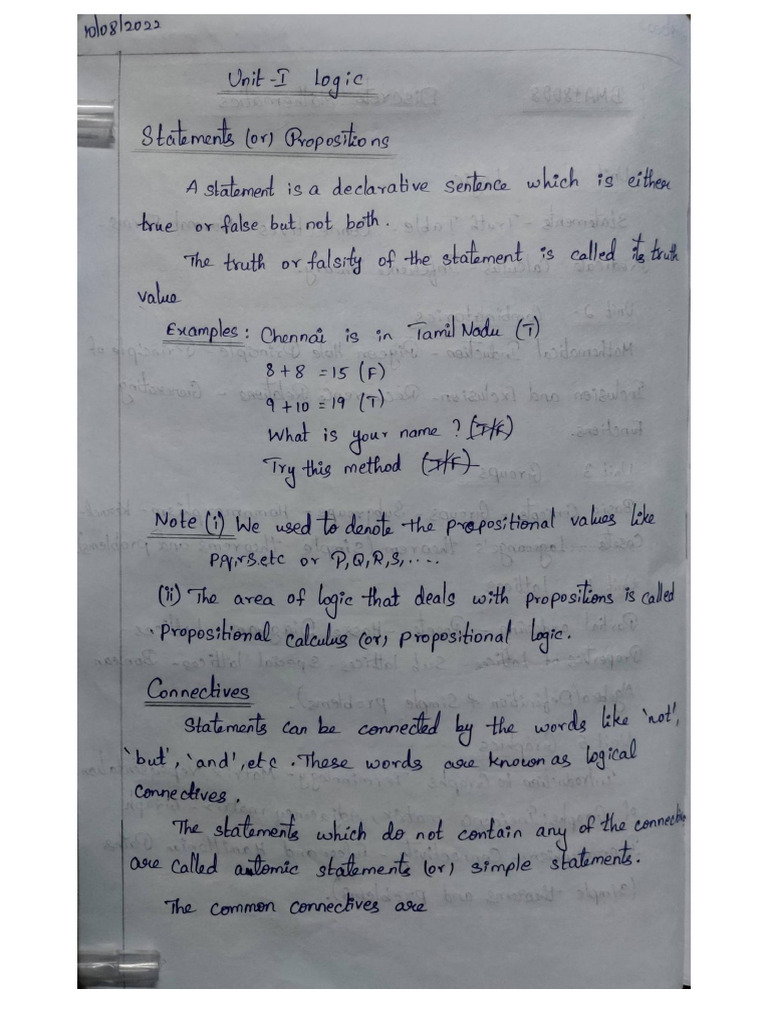 10/08/2022
Unit-I Logic
Statements (or) Propositions
A statement is a declarative sentence which is either
true or false but not both.
The truth or falsity of the statement is called its truth
value
Examples: Chennai is in Tamil Nadu (T)
8+8 =15 (F)
9+10 =19 (T)
What is your name ? (T/F)
Try this method (T/F)
Note (i) We used to denote the propositional values like
p,q,r,s.etc or P,Q,R,S,....
(ii) The area of logic that deals with propositions is called
Propositional calculus (or) propositional logic.
Connectives
Statements can be connected by the words like 'not',
'but', 'and', etc. These words are known as logical
connectives.
The statements which do not contain any of the connective
are called automic statements (or) simple statements.
The common connectives are